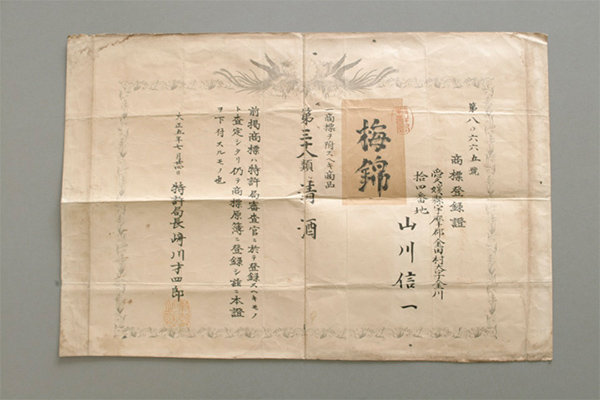 第八〇六六五號
商標登録證
愛媛縣宇摩郡金田村大字金川
拾四番地
山川信一
梅錦
商標ヲ附スヘキ商品
第三十八類 清酒
前掲商標ハ特許局審査官ニ於テ登録スヘキモノ
ト査定シタリ仍テ商標原簿ニ登録シ茲ニ本證
ヲ下付スルモノ也
大正五年七月廿四日
特許局長崎川才四郎